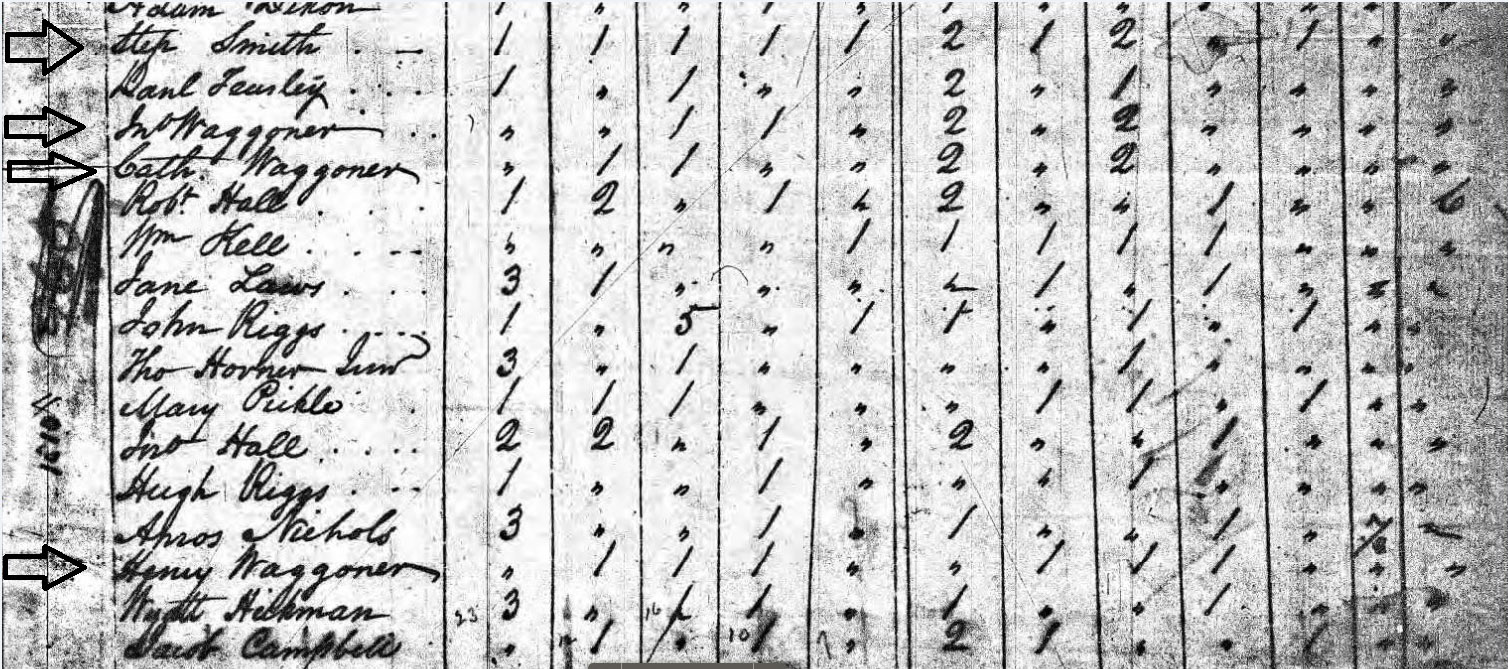 Adam Dixon 1 " " 1 " " " " " " " "
Step Smith . — 1 1 1 1 1 2 1 2 " 1 " "
Danl Teasley . . . . 1 " 1 " " 2 " 1 " " " "
Jno Waggoner . . " " 1 1 " 2 " 2 " " " "
Cath Waggoner " 1 1 " " 2 " 2 " " " "
Robt Hall . . . 1 2 " 1 " 2 " " 1 " " 6
Wm Kell . . -- " " " " 1 1 1 1 1 " " "
Jane Laws . . . 3 1 " " " " 1 " 1 " " "
John Riggs . . . . 1 " 5 " 1 1 " 1 " 1 " "
Tho Horner Junr 3 " 1 " " " " 1 " " " "
Mary Pickle . 1 1 1 " " " 1 1 " 1 " "
Jno Hall . . . . . 2 2 " 1 " 2 " " 1 " " "
Hugh Riggs . -- 1 " " 1 " " " 1 " " " "
Amos Nichols 3 " " 1 " 1 " " 1 "
Henry Waggoner " 1 1 1 " " 1 1 1 " " "
Wyatt Hickman 23 3 " 16 1 1 " 1 " " 1 " " "
Jacob Campbell . " 1 " 10 1 " 2 1 " " 1 " "